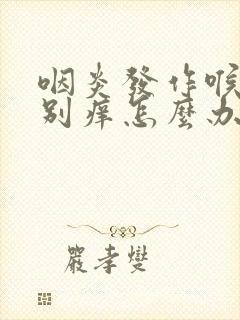 咽炎發作喉
別癢怎麼办
嚴孝燮